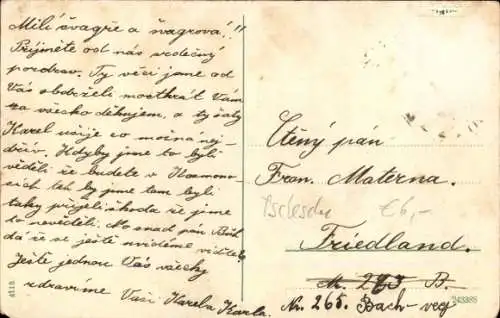 Milí švagře a švagrová!!
Přijměte od nás srdečný
pozdrav. Ty věci jsme od
Vás obdrželi mockrát Vám
za všecko děkujem, a ty šaty
Karel užije co možná nej-
dřív. Kdyby jsme to byli
věděli že budete v
sích teh by jsme tam byli
taky přijeli škoda že jsme
to nevěděli. No snad pán Bůh
dá že se ještě uvidíme
Ještě jednou Vás všecky
zdravíme Vaši Karel a Karla.
Ctěný pán
Fran. Materna.
€6,-
Friedland.
Nr. 273 B.
Nr. 265. Bach-weg
243385